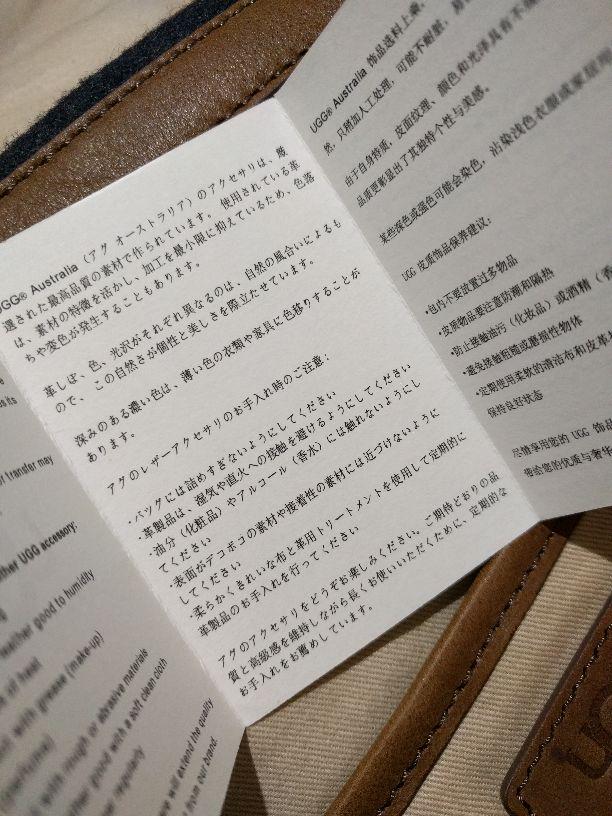 its
or transfer may
UGG accessory:
leather good to humidity
of heat
with grease (make-up)
with rough or abrasive materials
good with a soft clean cloth
regularly
will extend the quality
from our brand.
UGG® Australia（アグ オーストラリア）のアクセサリは、厳
選された最高品質の素材で作られています。使用されている革
は、素材の特徴を活かし、加工を最小限に抑えているため、色落
ちや変色が発生することもあります。
革しぼ、色、光沢がそれぞれ異なるのは、自然の風合いによるも
ので、この自然さが個性と美しさを際立たせています。
深みのある濃い色は、薄い色の衣類や家具に色移りすることが
あります。
アグのレザーアクセサリのお手入れ時のご注意：
・バッグには詰めすぎないようにしてください
・革製品は、湿気や直火への接触を避けるようにしてください
・油分（化粧品）やアルコール（香水）には触れないようにし
てください
・表面がデコボコの素材や接着性の素材には近づけないように
してください
・柔らかくきれいな布と革用トリートメントを使用して定期的に
革製品のお手入れを行ってください
アグのアクセサリをどうぞお楽しみください。ご期待どおりの品
質と高級感を維持しながら長くお使いいただくために、定期的な
お手入れをお薦めしています。
UGG® Australia 饰品选料上乘，
然，只稍加人工处理，可能不耐脏，
由于自身特质，皮面纹理、颜色和光泽具有不
品质更彰显出了其独特个性与美感。
某些深色或强色可能会染色，沾染浅色衣服或家居用
UGG 皮质饰品保养建议：
•包内不要放置过多物品
•皮质物品要注意防潮和隔热
•防止接触油污（化妆品）或酒精（香
•避免接触粗糙或磨损性物体
•定期使用柔软的清洁布和皮革
保持良好状态
尽情享用您的 UGG 饰品
带给您的优质与奢华